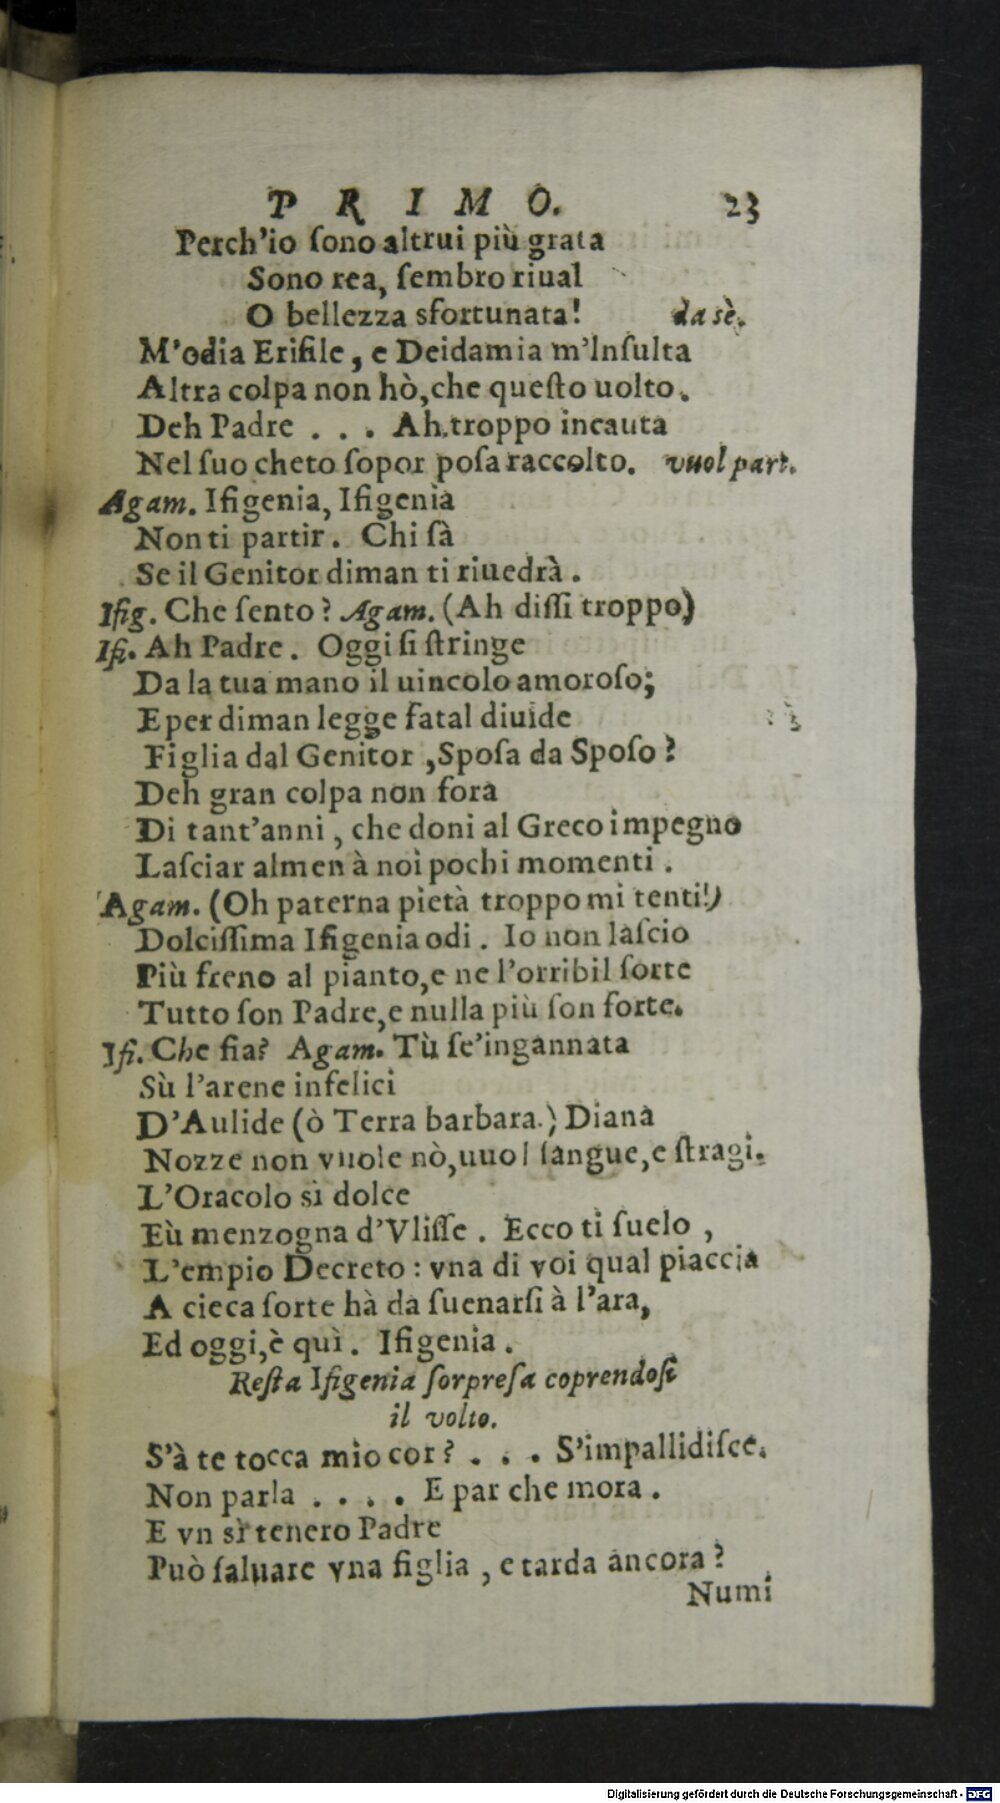 PRIMO. 23
Perch'io ſono altrui più grata
Sono rea, ſembro riual
O bellezza sfortunata! da sè.
M'odia Erifile, e Deidamia m'Inſulta
Altra colpa non hò, che queſto uolto.
Deh Padre . . . Ah troppo incauta
Nel ſuo cheto ſopor poſa raccolto. vuol part.
Agam. Ifigenia, Ifigenia
Non ti partir. Chi ſà
Se il Genitor diman ti riuedrà.
Ifig. Che ſento? Agam. (Ah diſſi troppo)
Ifi. Ah Padre. Oggi ſi ſtringe
Da la tua mano il uincolo amoroſo;
E per diman legge fatal diuide
Figlia dal Genitor, Spoſa da Spoſo?
Deh gran colpa non fora
Di tant'anni, che doni al Greco impegno
Laſciar almen à noi pochi momenti.
Agam. (Oh paterna pietà troppo mi tenti!)
Dolciſſima Ifigenia odi. Io non laſcio
Più freno al pianto, e ne l'orribil ſorte
Tutto ſon Padre, e nulla più ſon forte.
Ifi. Che fia? Agam. Tù ſe'ingannata
Sù l'arene infelici
D'Aulide (ò Terra barbara.) Diana
Nozze non vuole nò, uuol ſangue, e ſtragi.
L'Oracolo sì dolce
Fù menzogna d'Vliſſe. Ecco ti ſuelo,
L'empio Decreto: vna di voi qual piaccia
A cieca ſorte hà da ſuenarſi à l'ara,
Ed oggi, è quì. Ifigenia.
Reſta Ifigenia ſorpreſa coprendoſi
il volto.
S'à te tocca mio cor? . . . S'impallidiſce.
Non parla . . . . E par che mora.
E vn sì tenero Padre
Può ſaluare vna figlia, e tarda ancora?
Numi
Digitalisierung gefördert durch die Deutsche Forschungsgemeinschaft - DFG